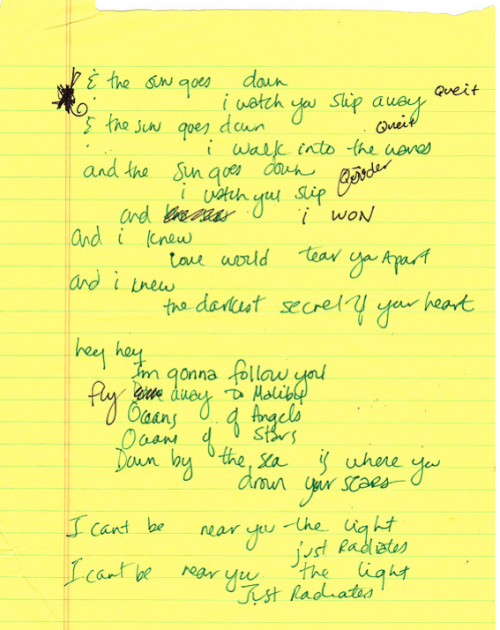 & the sun goes down
i watch you slip away Queit
& the sun goes down Queit
i walk into the waves
and the sun goes down
i watch you slip
and i WON
and i knew
love world tear ya Apart
and i knew
the darkest secret of your heart
hey hey
I'm gonna follow you
fly away to Malibu
Oceans of Angels
Oceans of Stars
Down by the sea is where you
drown your scars
I cant be near you the light
just Radiates
I cant be near you the light
Just Radiates